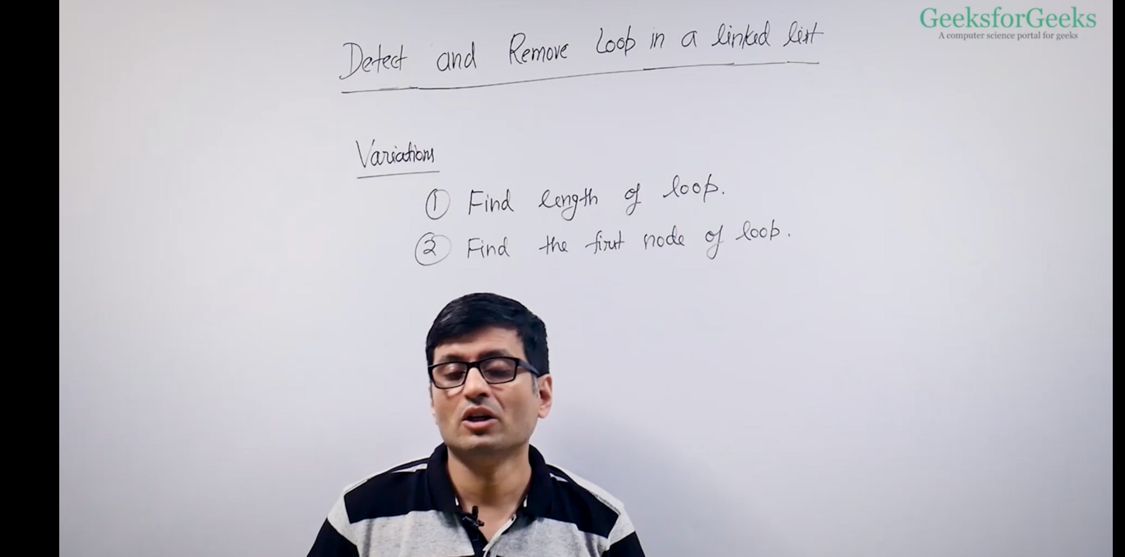 GeeksforGeeks
A computer science portal for geeks
Detect and Remove Loop in a linked list
Variations
① Find length of loop.
② Find the first node of loop.